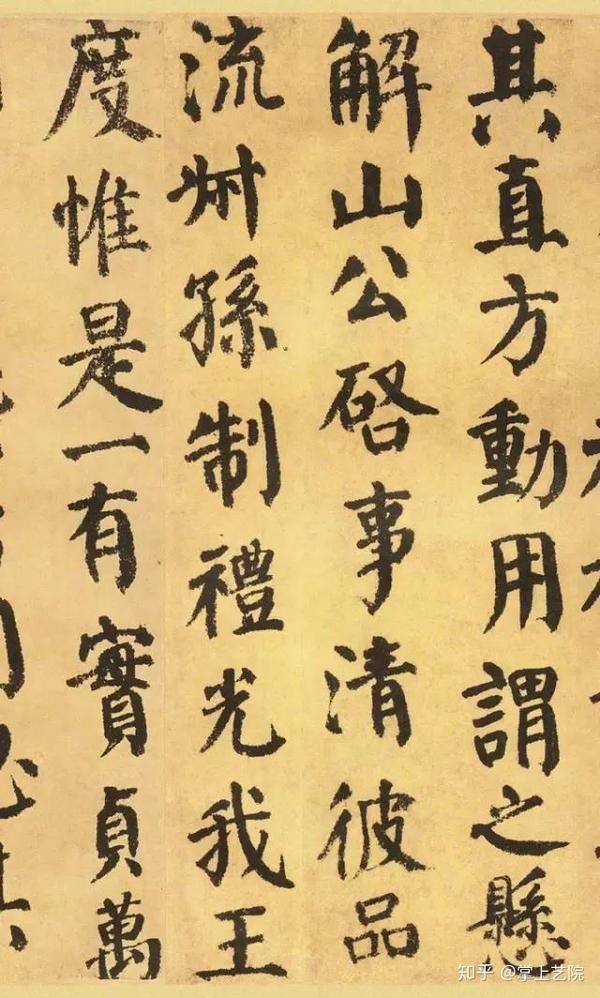 其直方動用謂之懸
解山公啓事清彼品
流叔孫制禮光我王
度惟是一有實貞萬
知乎 @掌上艺院